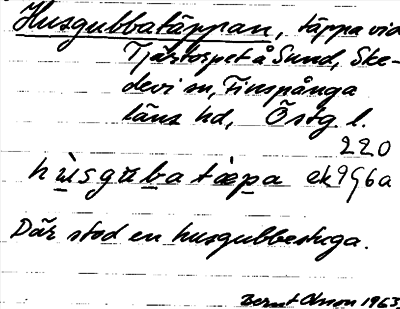 Husgubbatäppan, täppa vid
Tjärtorpet å Sund, Ske-
devi sn, Finspånga
läns hd, Östg l.
220
hùsgubatæpa ek996a
Där stod en husgubbestuga.
Bernt Olsson 1963